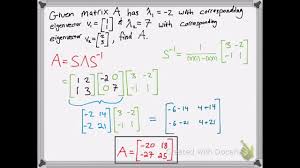 Given matrix A has λ₁ = -2 with corresponding
eigenvector v₁ = [1
1] & λ₂ = 7 with corresponding
eigenvector v₂ = [2
3], find A.
A = SΛS⁻¹
S⁻¹ = 1/((1)(3)-(1)(2)) [3 -2
-1 1]
= [1 2
1 3] [-2 0
0 7] [3 -2
-1 1]
[-2 14
-2 21] [3 -2
-1 1] = [-6-14 4+14
-6-21 4+21]
A = [-20 18
-27 25]
Created With